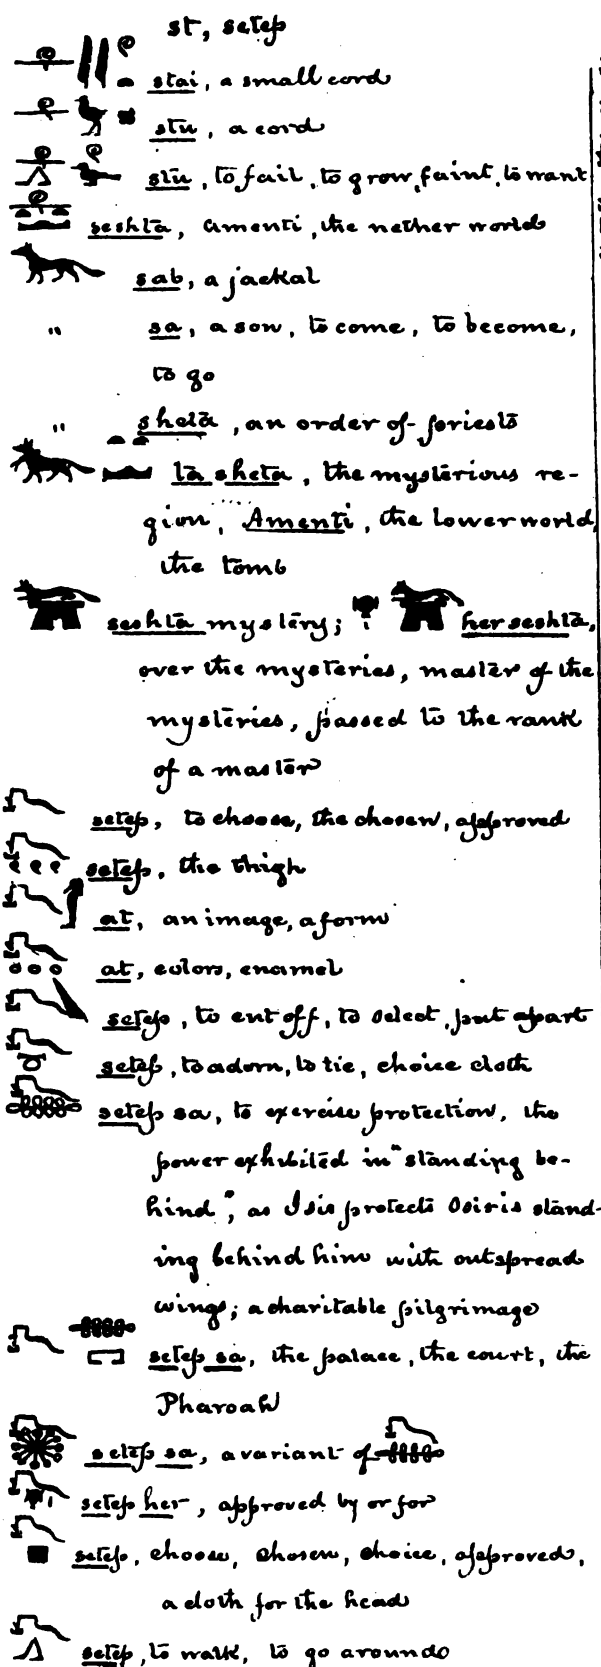 st, setep
stai, a small cord
stu, a cord
stu, to fail, to grow faint, to want
seshta, Amenti, the nether world
sab, a jackal
" sa, a son, to come, to become,
to go
" sheta, an order of priests
ta sheta, the mysterious re-
gion, Amenti, the lower world,
the tomb
seshta mystery; her seshta,
over the mysteries, master of the
mysteries, passed to the rank
of a master
setep, to choose, the chosen, approved
setep, the thigh
at, an image, a form
at, colors, enamel
setep, to cut off, to select, put apart
setep, to adorn, to tie, choice cloth
setep sa, to exercise protection, the
power exhibited in "standing be-
hind", as Isis protects Osiris stand-
ing behind him with outspread
wings; a charitable pilgrimage
setep sa, the palace, the court, the
Pharoah
setep sa, a variant of
setep her, approved by or for
setep, choose, chosen, choice, approved,
a cloth for the head
setep, to walk, to go around